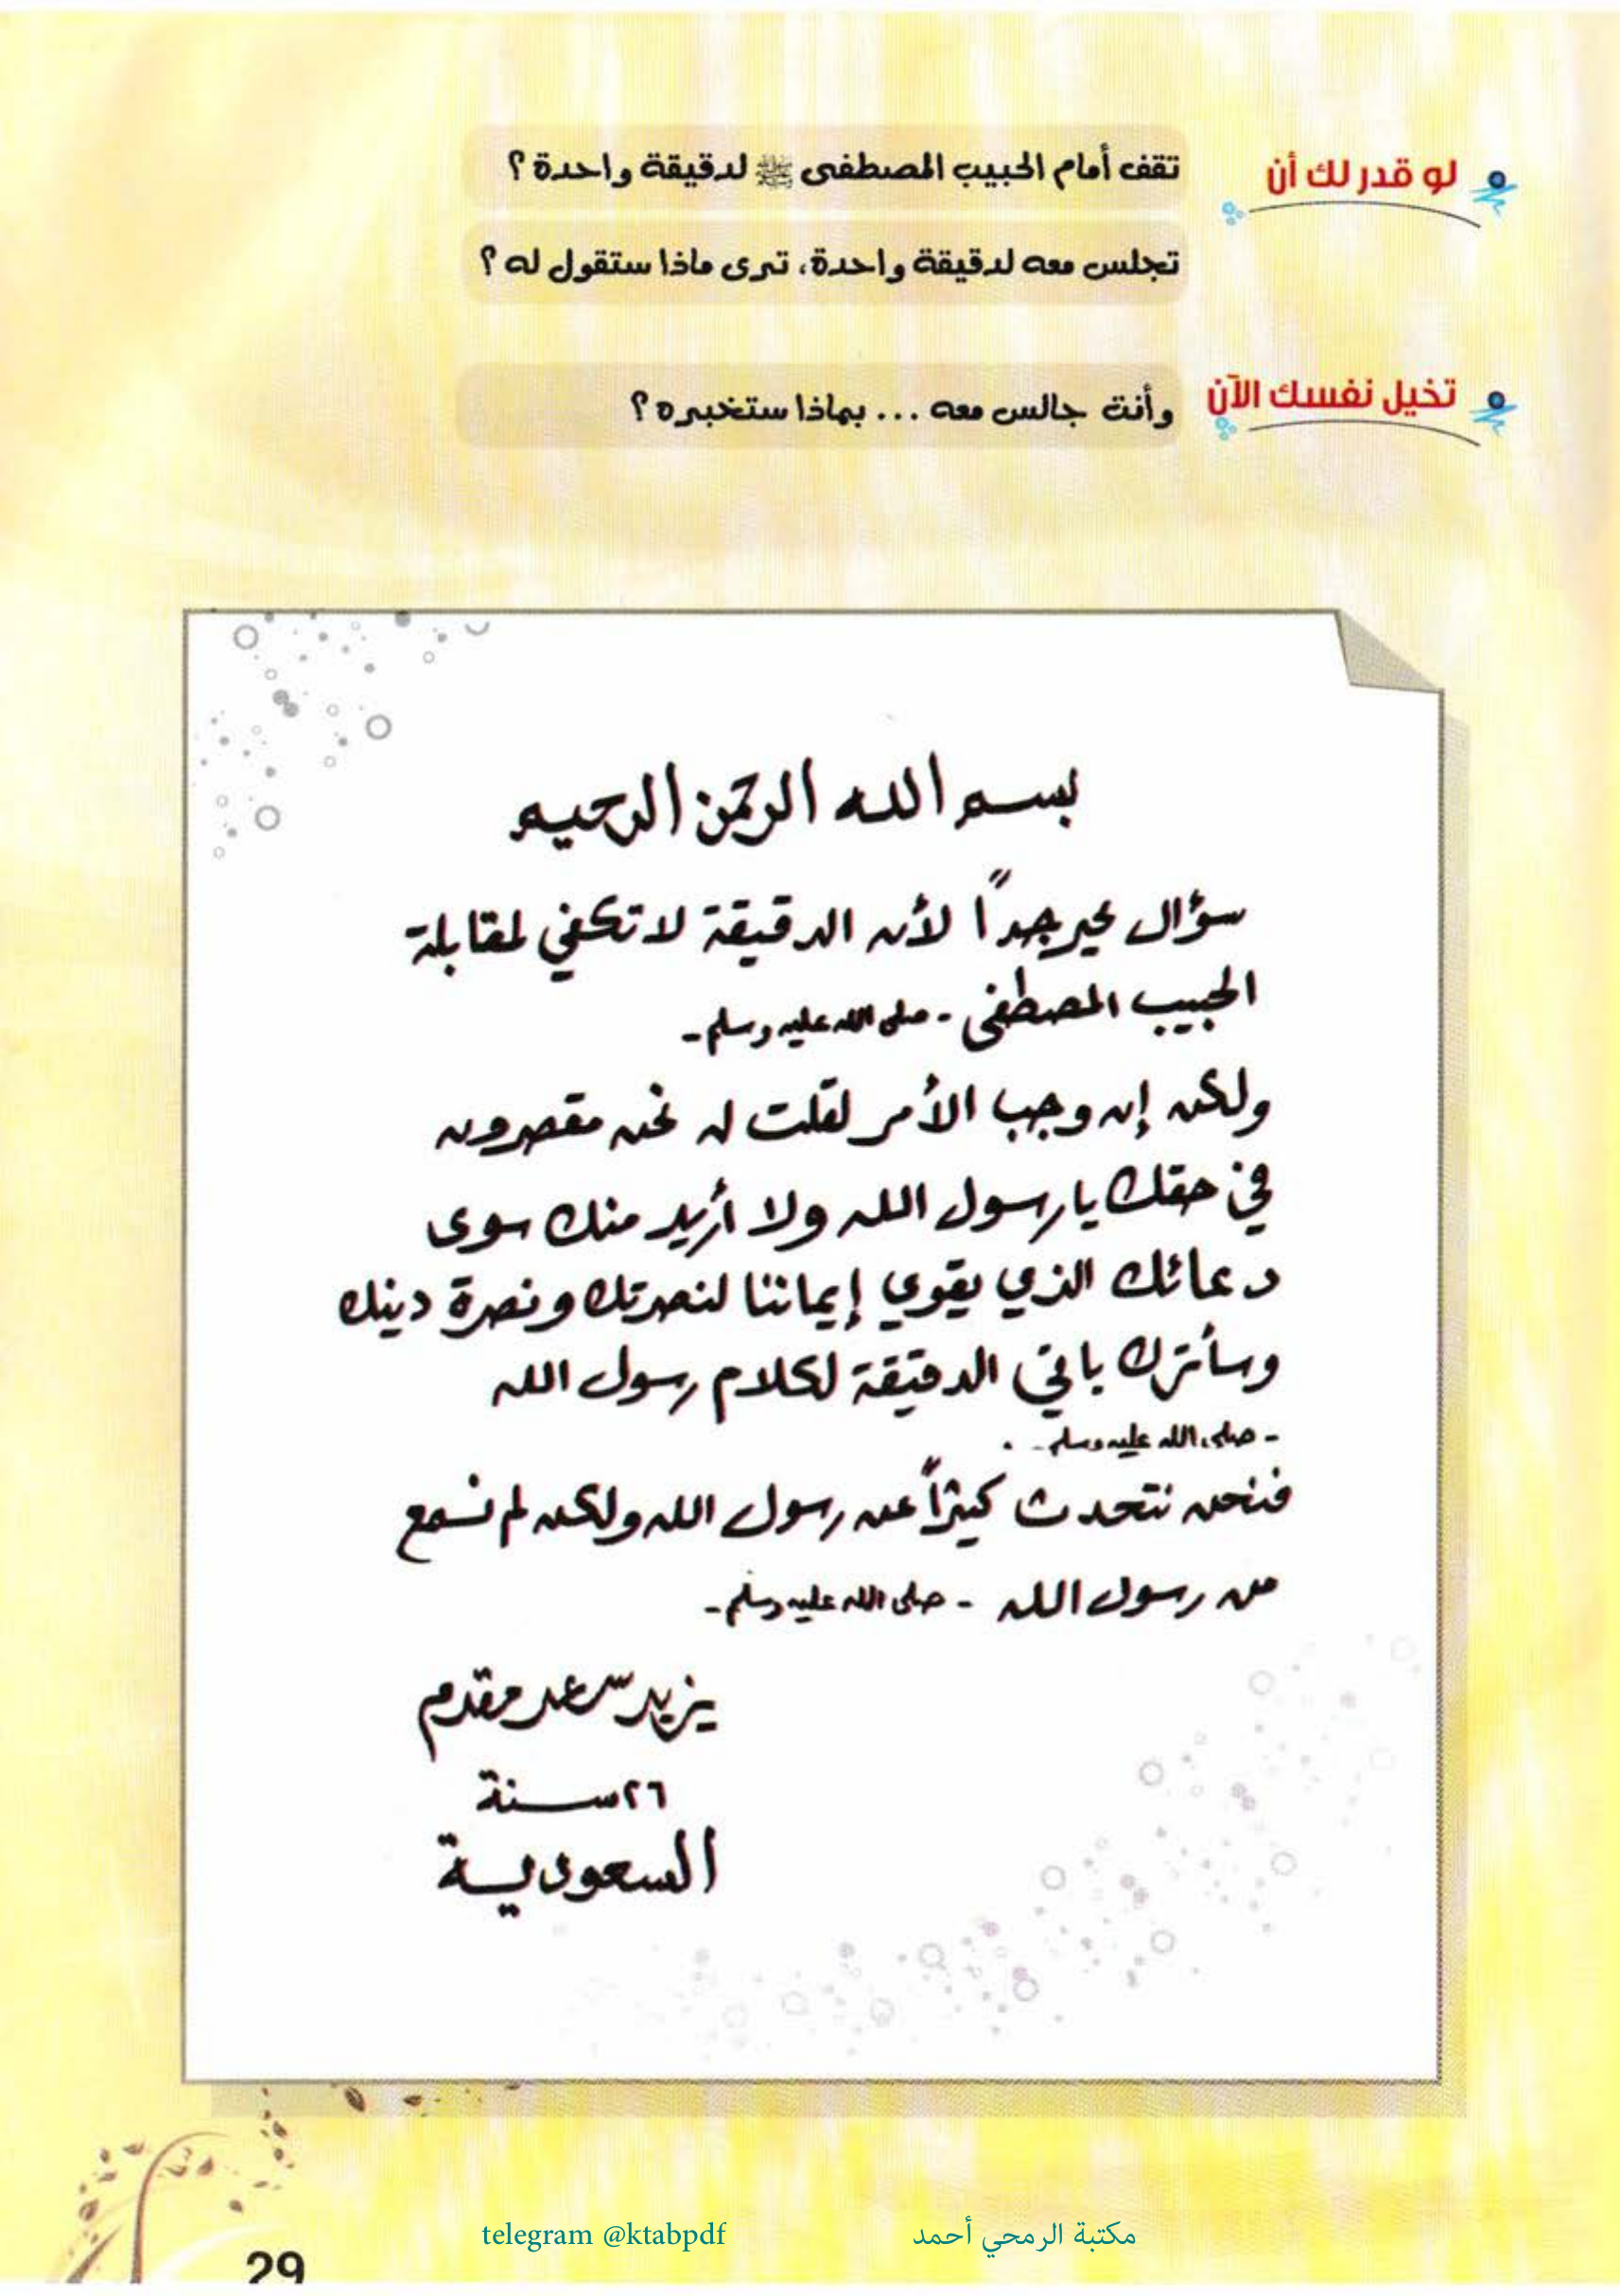 لو قدر لك أن تقف أمام الحبيب المصطفى ﷺ لدقيقة واحدة ؟
تجلس معه لدقيقة واحدة، ترى ماذا ستقول له ؟
تخيل نفسك الآن وأنت جالس معه ... بماذا ستخبره ؟
بسم الله الرحمن الرحيم
سؤال محير جداً لأن الدقيقة لا تكفي لمقابلة
الحبيب المصطفى - صلى الله عليه وسلم -
ولكن إن وجب الأمر لقلت له نحن مقصرون
في حقك يا رسول الله ولا أريد منك سوى
دعائك الذي يقوي إيماننا لنصرتك ونصرة دينك
وسأترك باقي الدقيقة لكلام رسول الله
- صلى الله عليه وسلم - .
فنحن نتحدث كثيراً عن رسول الله ولكن لم نسمع
من رسول الله - صلى الله عليه وسلم -
يزيد سعد مقدم
٢٦ سنة
السعودية
مكتبة الرمحي أحمد telegram @ktabpdf
29